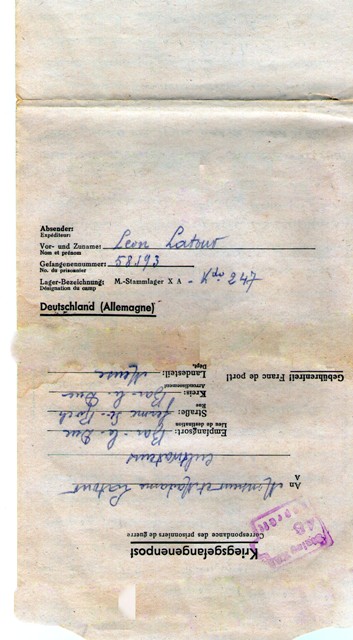 Absender:
Expéditeur:
Vor- und Zuname: Leon Latour
Nom et prénom
Gefangenennummer: 58193
No. du prisonnier
Lager-Bezeichnung: M.-Stammlager X A - 247
Désignation du camp
Deutschland (Allemagne)
Kriegsgefangenenpost
Correspondance des prisonniers de guerre
An Monsieur et Madame Latour
A
Cultivateurs
Empfangsort: Bar-le-Duc
Lieu de destination
Straße: Ferme St-Roch
Rue
Kreis: Bar-le-Duc
Arrondissement
Landesteil: Meuse
Dépt.
Gebührenfrei! Franc de port!
Stalag
48
Geprüft